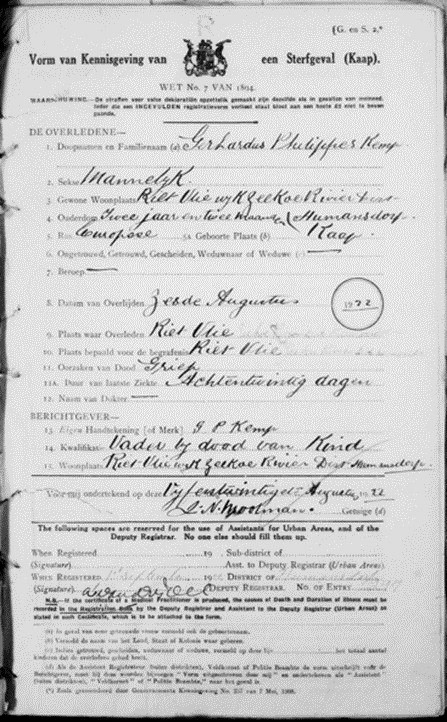 [G. en S. 2.*
Vorm van Kennisgeving van een Sterfgeval (Kaap).
WET No. 7 VAN 1894.
WAARSCHUWING.—De straffen voor valse deklaratiën opzettelik gemaakt zijn dezelfde als in gevallen van meineed.
Ieder die een INGEVULDEN registratievorm verliest staat bloot aan een boete £2 niet te boven
gaande.
DE OVERLEDENE—
1. Doopnamen en Familienaam (a) Gerhardus Philippus Kemp
2. Sekse Mannelyk.
3. Gewone Woonplaats Riet Vlie wyk Zeekoe Rivier Dist
4. Ouderdom Twee jaar en twee maanden Humansdorp
5. Ras Europese 5A Geboorte Plaats (b) Kaap
6. Ongetrouwd, Getrouwd, Gescheiden, Weduwnaar of Weduwe (c) —
7. Beroep —
8. Datum van Overlijden Zesde Augustus 1922
9. Plaats waar Overleden Riet Vlie
10. Plaats bepaald voor de begrafenis Riet Vlie
11. Oorzaken van Dood Griep
11A. Duur van laatste Ziekte Achtentwintig dagen
12. Naam van Dokter —
BERICHTGEVER—
13. Eigen Handtekening [of Merk] G P Kemp
14. Kwalifikatie Vader by dood van Kind
15. Woonplaats Riet Vlie wyk Zeekoe Rivier Dist Humansdorp
Voor mij ondertekend op deze Vyfentwintigste Augustus 1922
Moolman. Getuige (d)
The following spaces are reserved for the use of Assistants for Urban Areas, and of the
Deputy Registrar. No one else should fill them up.
When Registered 19 Sub-district of
(Signature) Asst. to Deputy Registrar (Urban Areas)
WHEN REGISTERED September 19 DISTRICT OF
(Signature) DEPUTY REGISTRAR. NO. OF ENTRY
N.B.—If the certificate of a Medical Practitioner is produced, the causes of Death and Duration of Illness must be
recorded in the Registration Book by the Deputy Registrar and Assistant to the Deputy Registrar (Urban Areas) as
stated in such Certificate, which is to be attached to the form.
(a) In geval van zeer getrouwde vrouw vermeld ook de geboortenaam.
(b) Vermeld de naam van het Land, Staat of Kolonie waar geboren.
(c) Indien getrouwd, gescheiden, weduwnaar of weduwe, vermeld op dit het totaal aantal
kinderen dat de overledene gehad heeft.